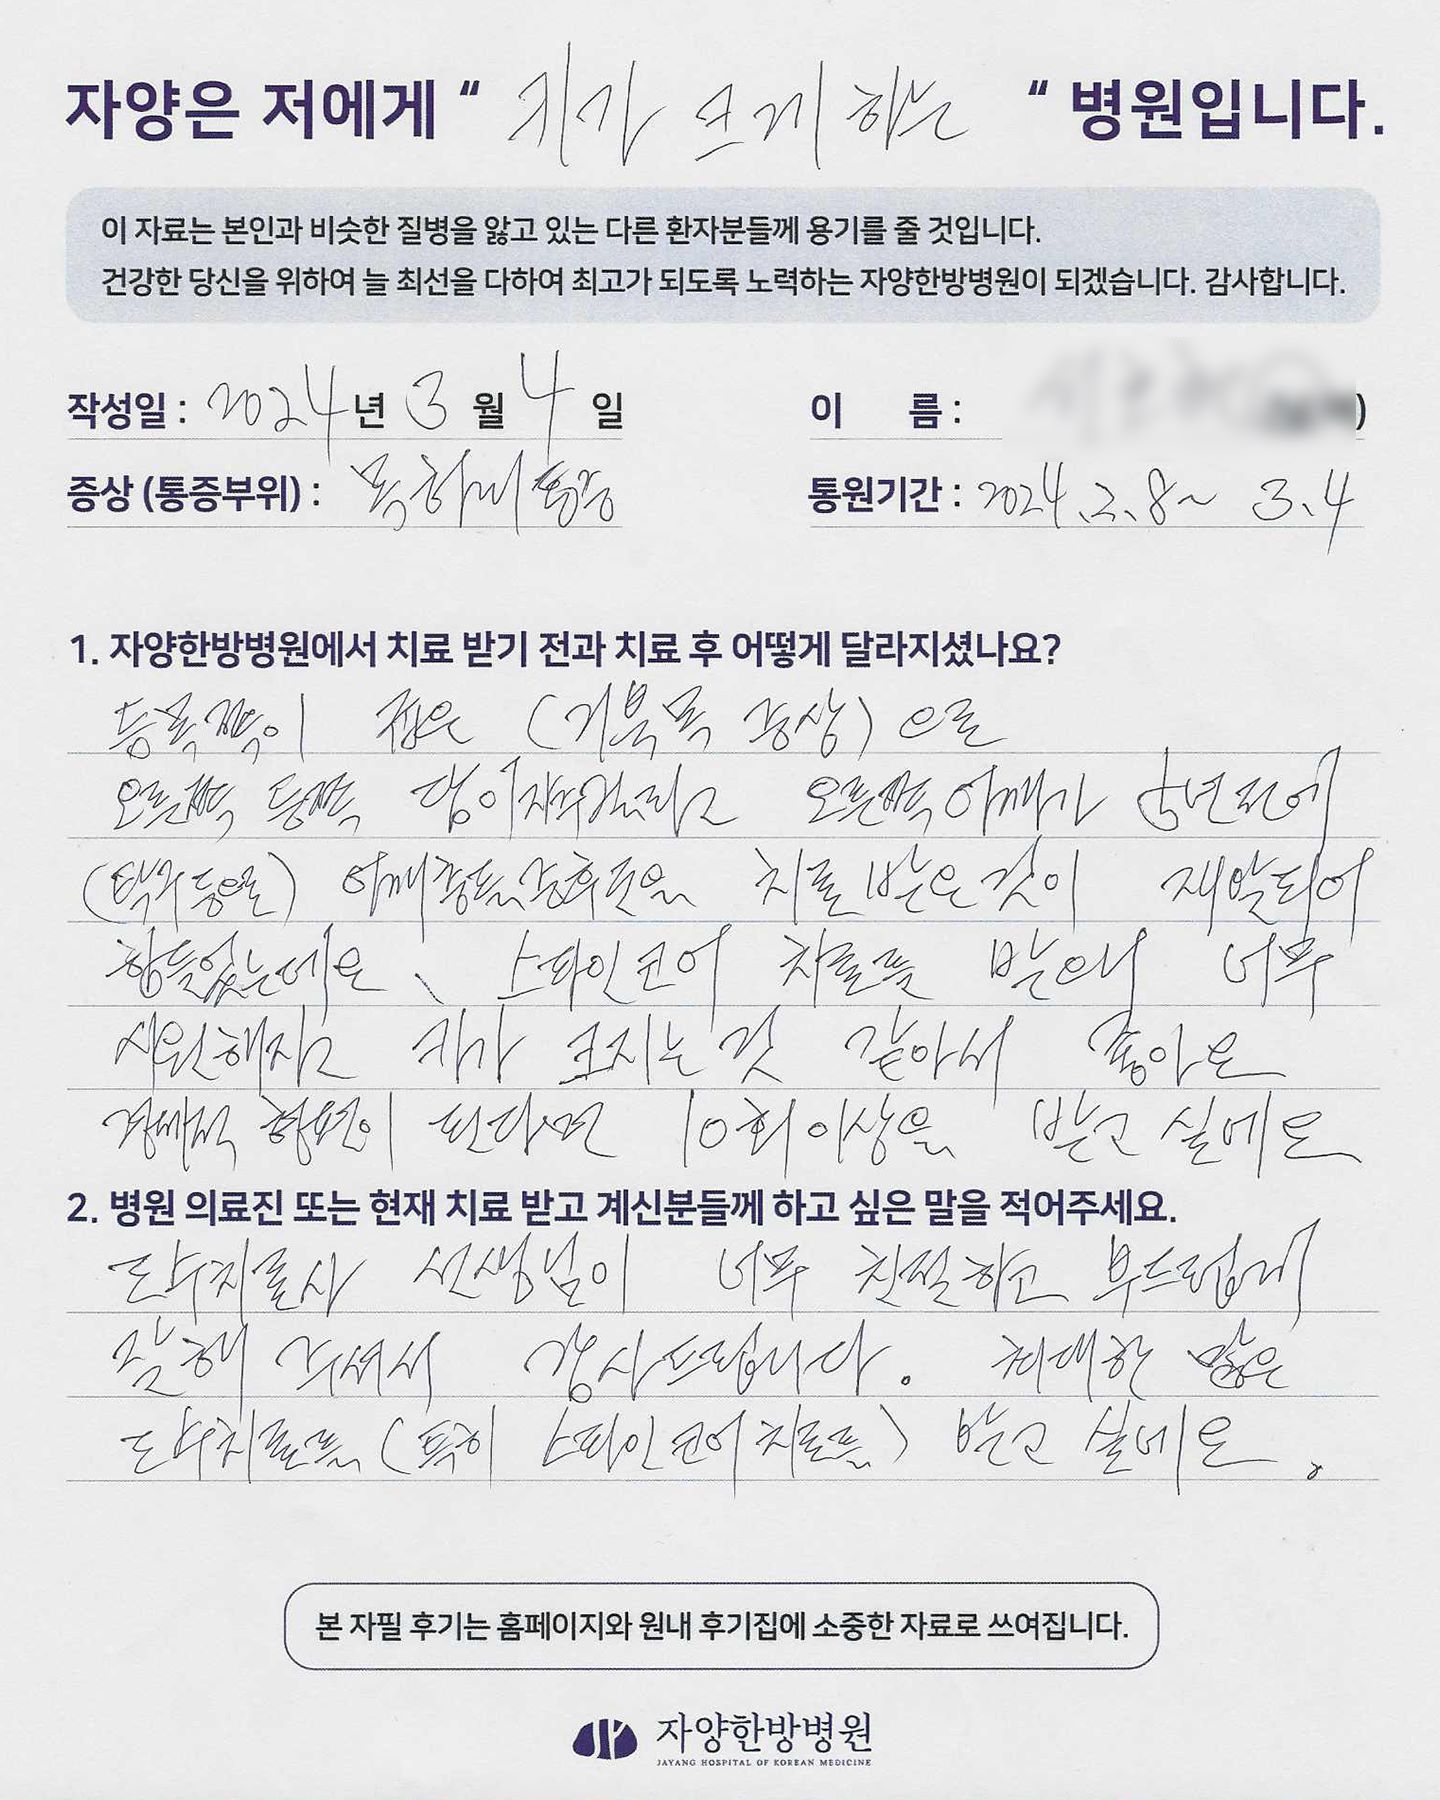 자양은 저에게 “ 키가 크게 하는 “ 병원입니다.
이 자료는 본인과 비슷한 질병을 앓고 있는 다른 환자분들께 용기를 줄 것입니다.
건강한 당신을 위하여 늘 최선을 다하여 최고가 되도록 노력하는 자양한방병원이 되겠습니다. 감사합니다.
작성일 : 2024년 3월 4일
이 름 : )
증상 (통증부위) : 목허리통증
통원기간 : 2024.2.8~ 3.4
1. 자양한방병원에서 치료 받기 전과 치료 후 어떻게 달라지셨나요?
등목쪽이 굽은 (거북목 증상)으로
오른쪽 등쪽 담이자주걸리고 오른쪽어깨가 5년전에
(탁구등으로) 어깨충돌증후군을 치료받은것이 재발되어
힘들었는데요、 스파인코어 치료를 받으니 너무
시원해지고 키가 크지는것 같아서 좋아요
경제적 형편이 된다면 10회이상을 받고싶네요
2. 병원 의료진 또는 현재 치료 받고 계신분들께 하고 싶은 말을 적어주세요.
도수치료사 선생님이 너무 친절하고 부드럽게
잘해 주셔서 감사드립니다. 최대한 많은
도수치료를 (특히 스파인코어치료를) 받고싶네요.
본 자필 후기는 홈페이지와 원내 후기집에 소중한 자료로 쓰여집니다.
자양한방병원
JAYANG HOSPITAL OF KOREAN MEDICINE